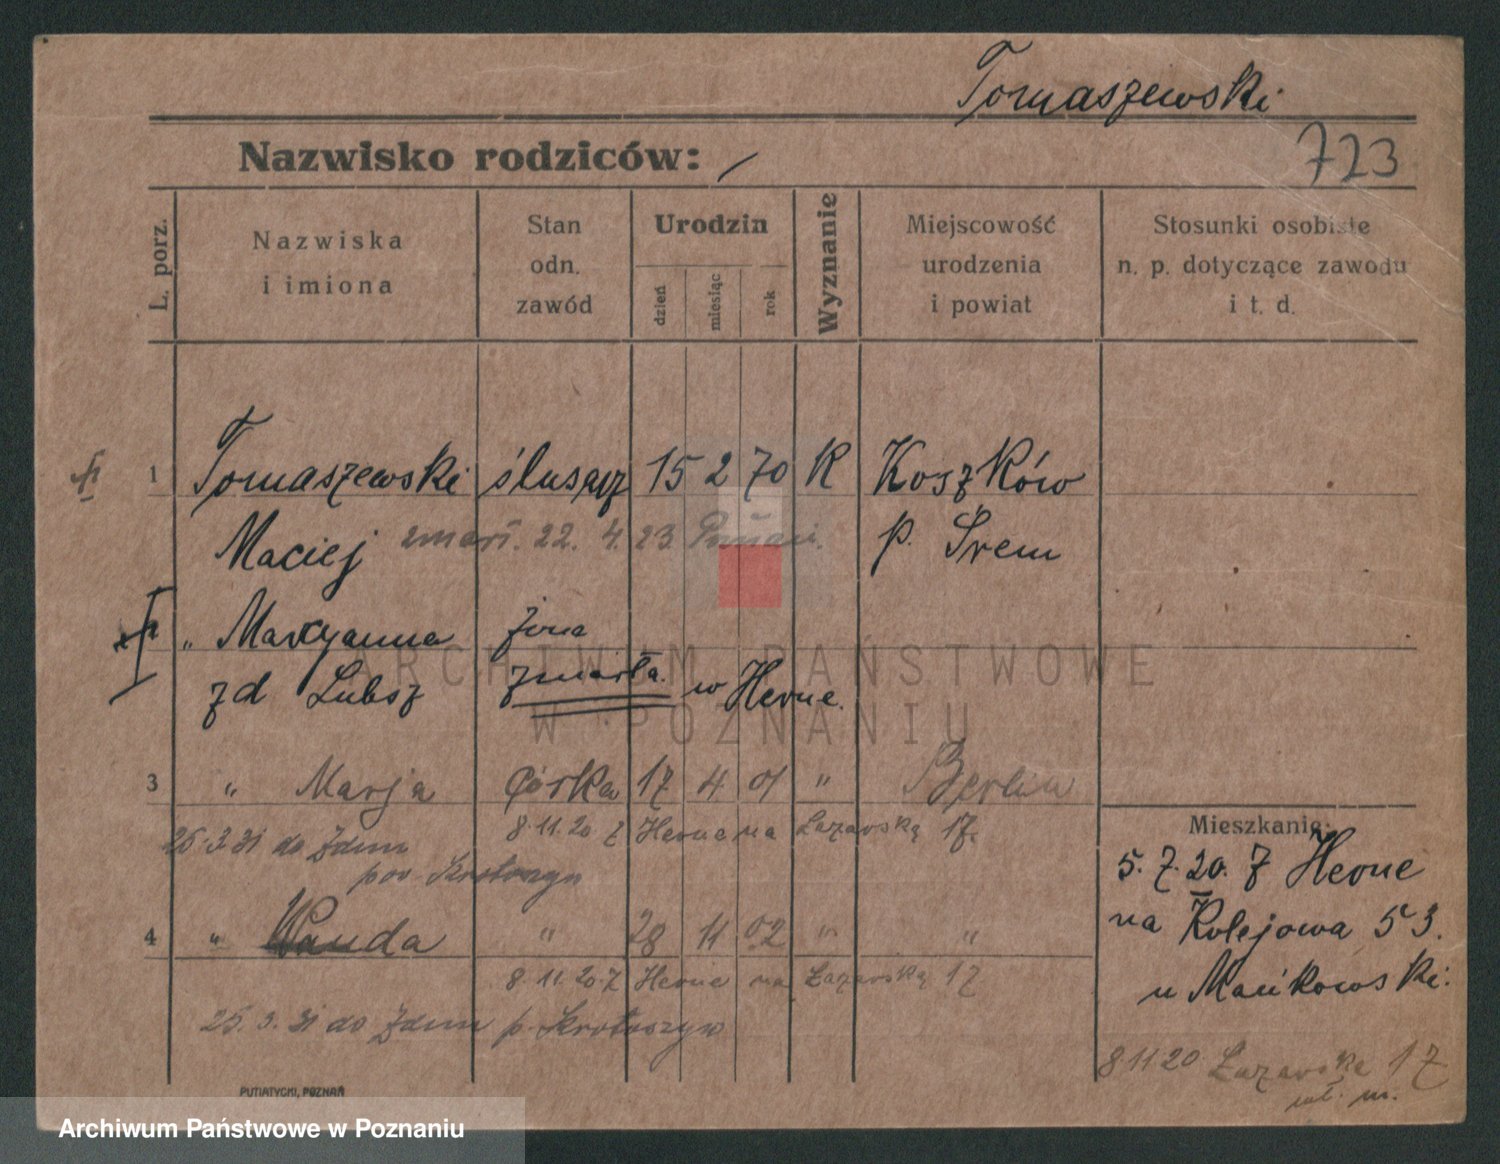 Tomaszewski
723
Nazwisko rodziców: /
L. porz.
Nazwiska
i imiona
Stan
odn.
zawód
Urodzin
dzień
miesiąc
rok
Wyznanie
Miejscowość
urodzenia
i powiat
Stosunki osobiste
n. p. dotyczące zawodu
i t. d.
1 Tomaszewski ślusarz 15 2 70 K Koszków
Maciej zmarł. 22. 4. 23 p. Śrem
" Maryanna żona
zd Lubsz zmarła. w Herne.
3 " Marja córka 17 4 01 " Berlin
8.11.20 z Herne na Łazarską 17.
25.3.31 do Zdun
pow Krotoszyn
4 " Wanda " 28 11 02 " "
8.11.20 z Herne na Łazarską 17
25.3.31 do Zdun p. Krotoszyn
Mieszkania:
5.7.20. z Herne
na Kolejowa 53.
u Mańkowski.
8 11 20 Łazarska 17
PUTIATYCKI, POZNAŃ
ARCHIWUM PAŃSTWOWE
W POZNANIU
Archiwum Państwowe w Poznaniu